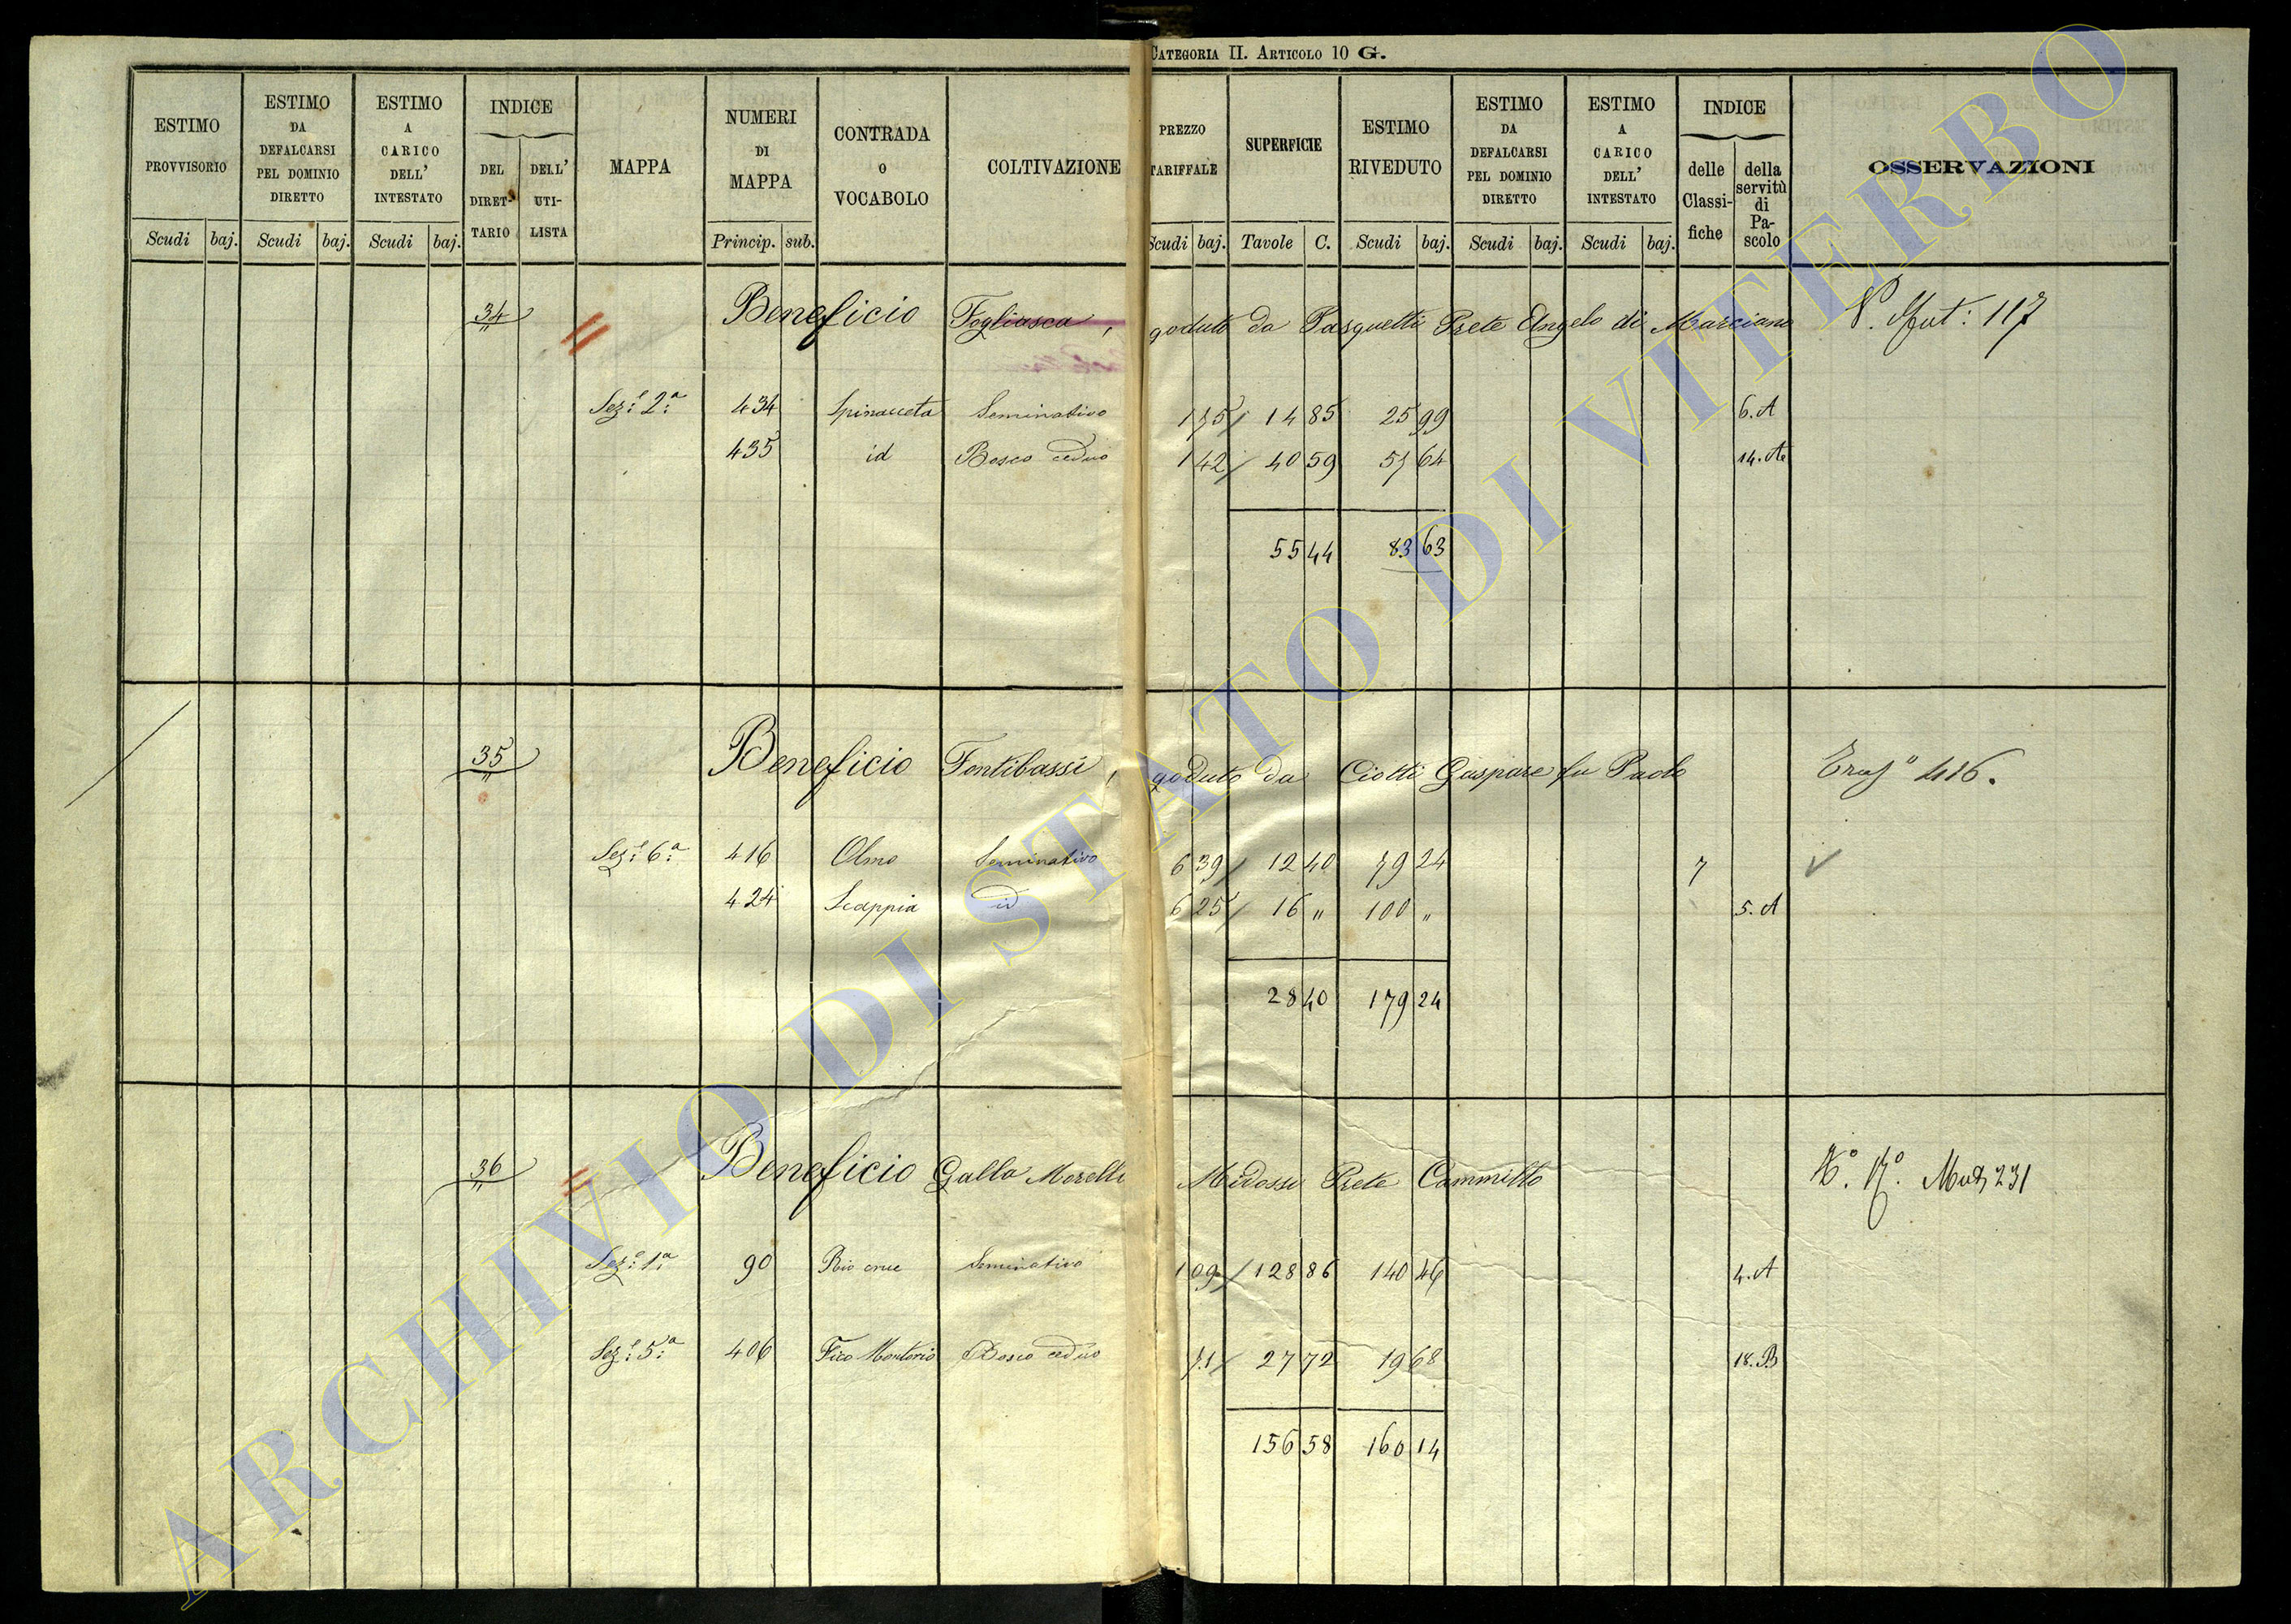 CATEGORIA II. ARTICOLO 10 G.
ESTIMO PROVVISORIO Scudi baj.
ESTIMO DA DEFALCARSI PEL DOMINIO DIRETTO Scudi baj.
ESTIMO A CARICO DELL' INTESTATO Scudi baj.
INDICE DEL DIRET-TARIO DELL' UTI-LISTA
MAPPA
NUMERI DI MAPPA Princip. sub.
CONTRADA O VOCABOLO
COLTIVAZIONE
PREZZO TARIFFALE Scudi baj.
SUPERFICIE Tavole C.
ESTIMO RIVEDUTO Scudi baj.
ESTIMO DA DEFALCARSI PEL DOMINIO DIRETTO Scudi baj.
ESTIMO A CARICO DELL' INTESTATO Scudi baj.
INDICE delle Classi-fiche della servitù di Pa-scolo
OSSERVAZIONI
34 Beneficio Fogliasca, goduto da Pasquetti Prete Angelo di Marciano V. Mut: 117
Sez: 2ª 434 Spinacceta Seminativo 1 75 / 14 85 25 99 6. A
435 id Bosco ceduo 1 42 / 40 59 57 64 14. A
55 44 83 63
35 Beneficio Fontibassi, goduto da Ciotti Gaspare fu Paolo 416.
Sez: 6ª 416 Olmo Seminativo 6 39 / 12 40 79 24 7
424 Scappia id 6 25 / 16 " 100 " 5. A
28 40 179 24
36 Beneficio Galla Morelli Midossi Prete Cammillo Mut 231
Sez: 1ª 90 Rio Seminativo 1 09 / 128 86 140 46 4. A
Sez: 5ª 406 Fico Montorio Bosco ceduo 71 / 27 72 19 68 18. B
156 58 160 14
ARCHIVIO DI STATO DI VITERBO